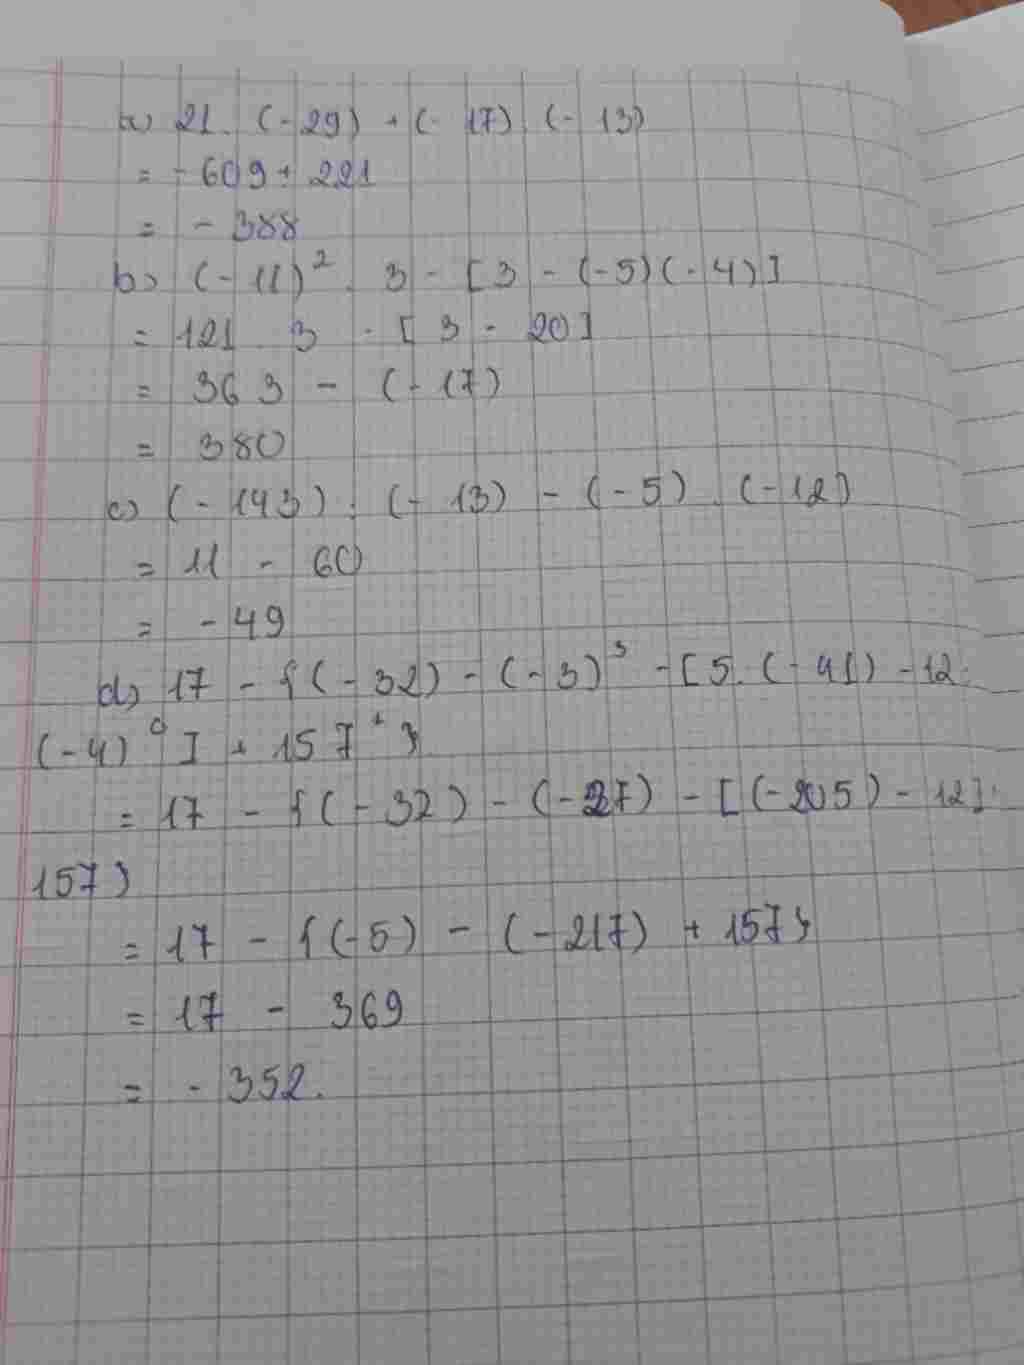 a) 21. (-29) + (-17). (-13)
= -609 + 221
= - 388
b) (-11)² . 3 - [3 - (-5)(-4)]
= 121 . 3 - [3 - 20]
= 363 - (-17)
= 380
c) (-143) : (-13) - (-5) . (-12)
= 11 - 60
= -49
d) 17 - {(-32) - (-3)³ - [5. (-41) - 12.
(-4)⁰] + 157¹}
= 17 - {(-32) - (-27) - [(-205) - 12] +
157}
= 17 - {(-5) - (-217) + 157}
= 17 - 369
= - 352.